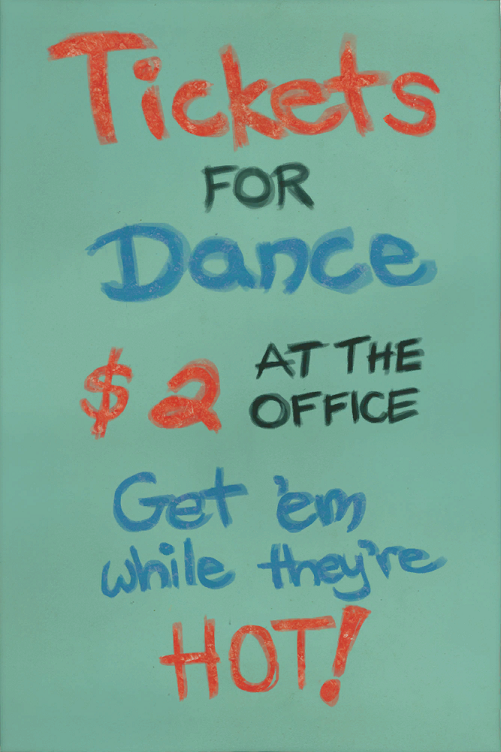 Tickets
FOR
Dance
$2 AT THE
OFFICE
Get 'em
while they're
HOT!